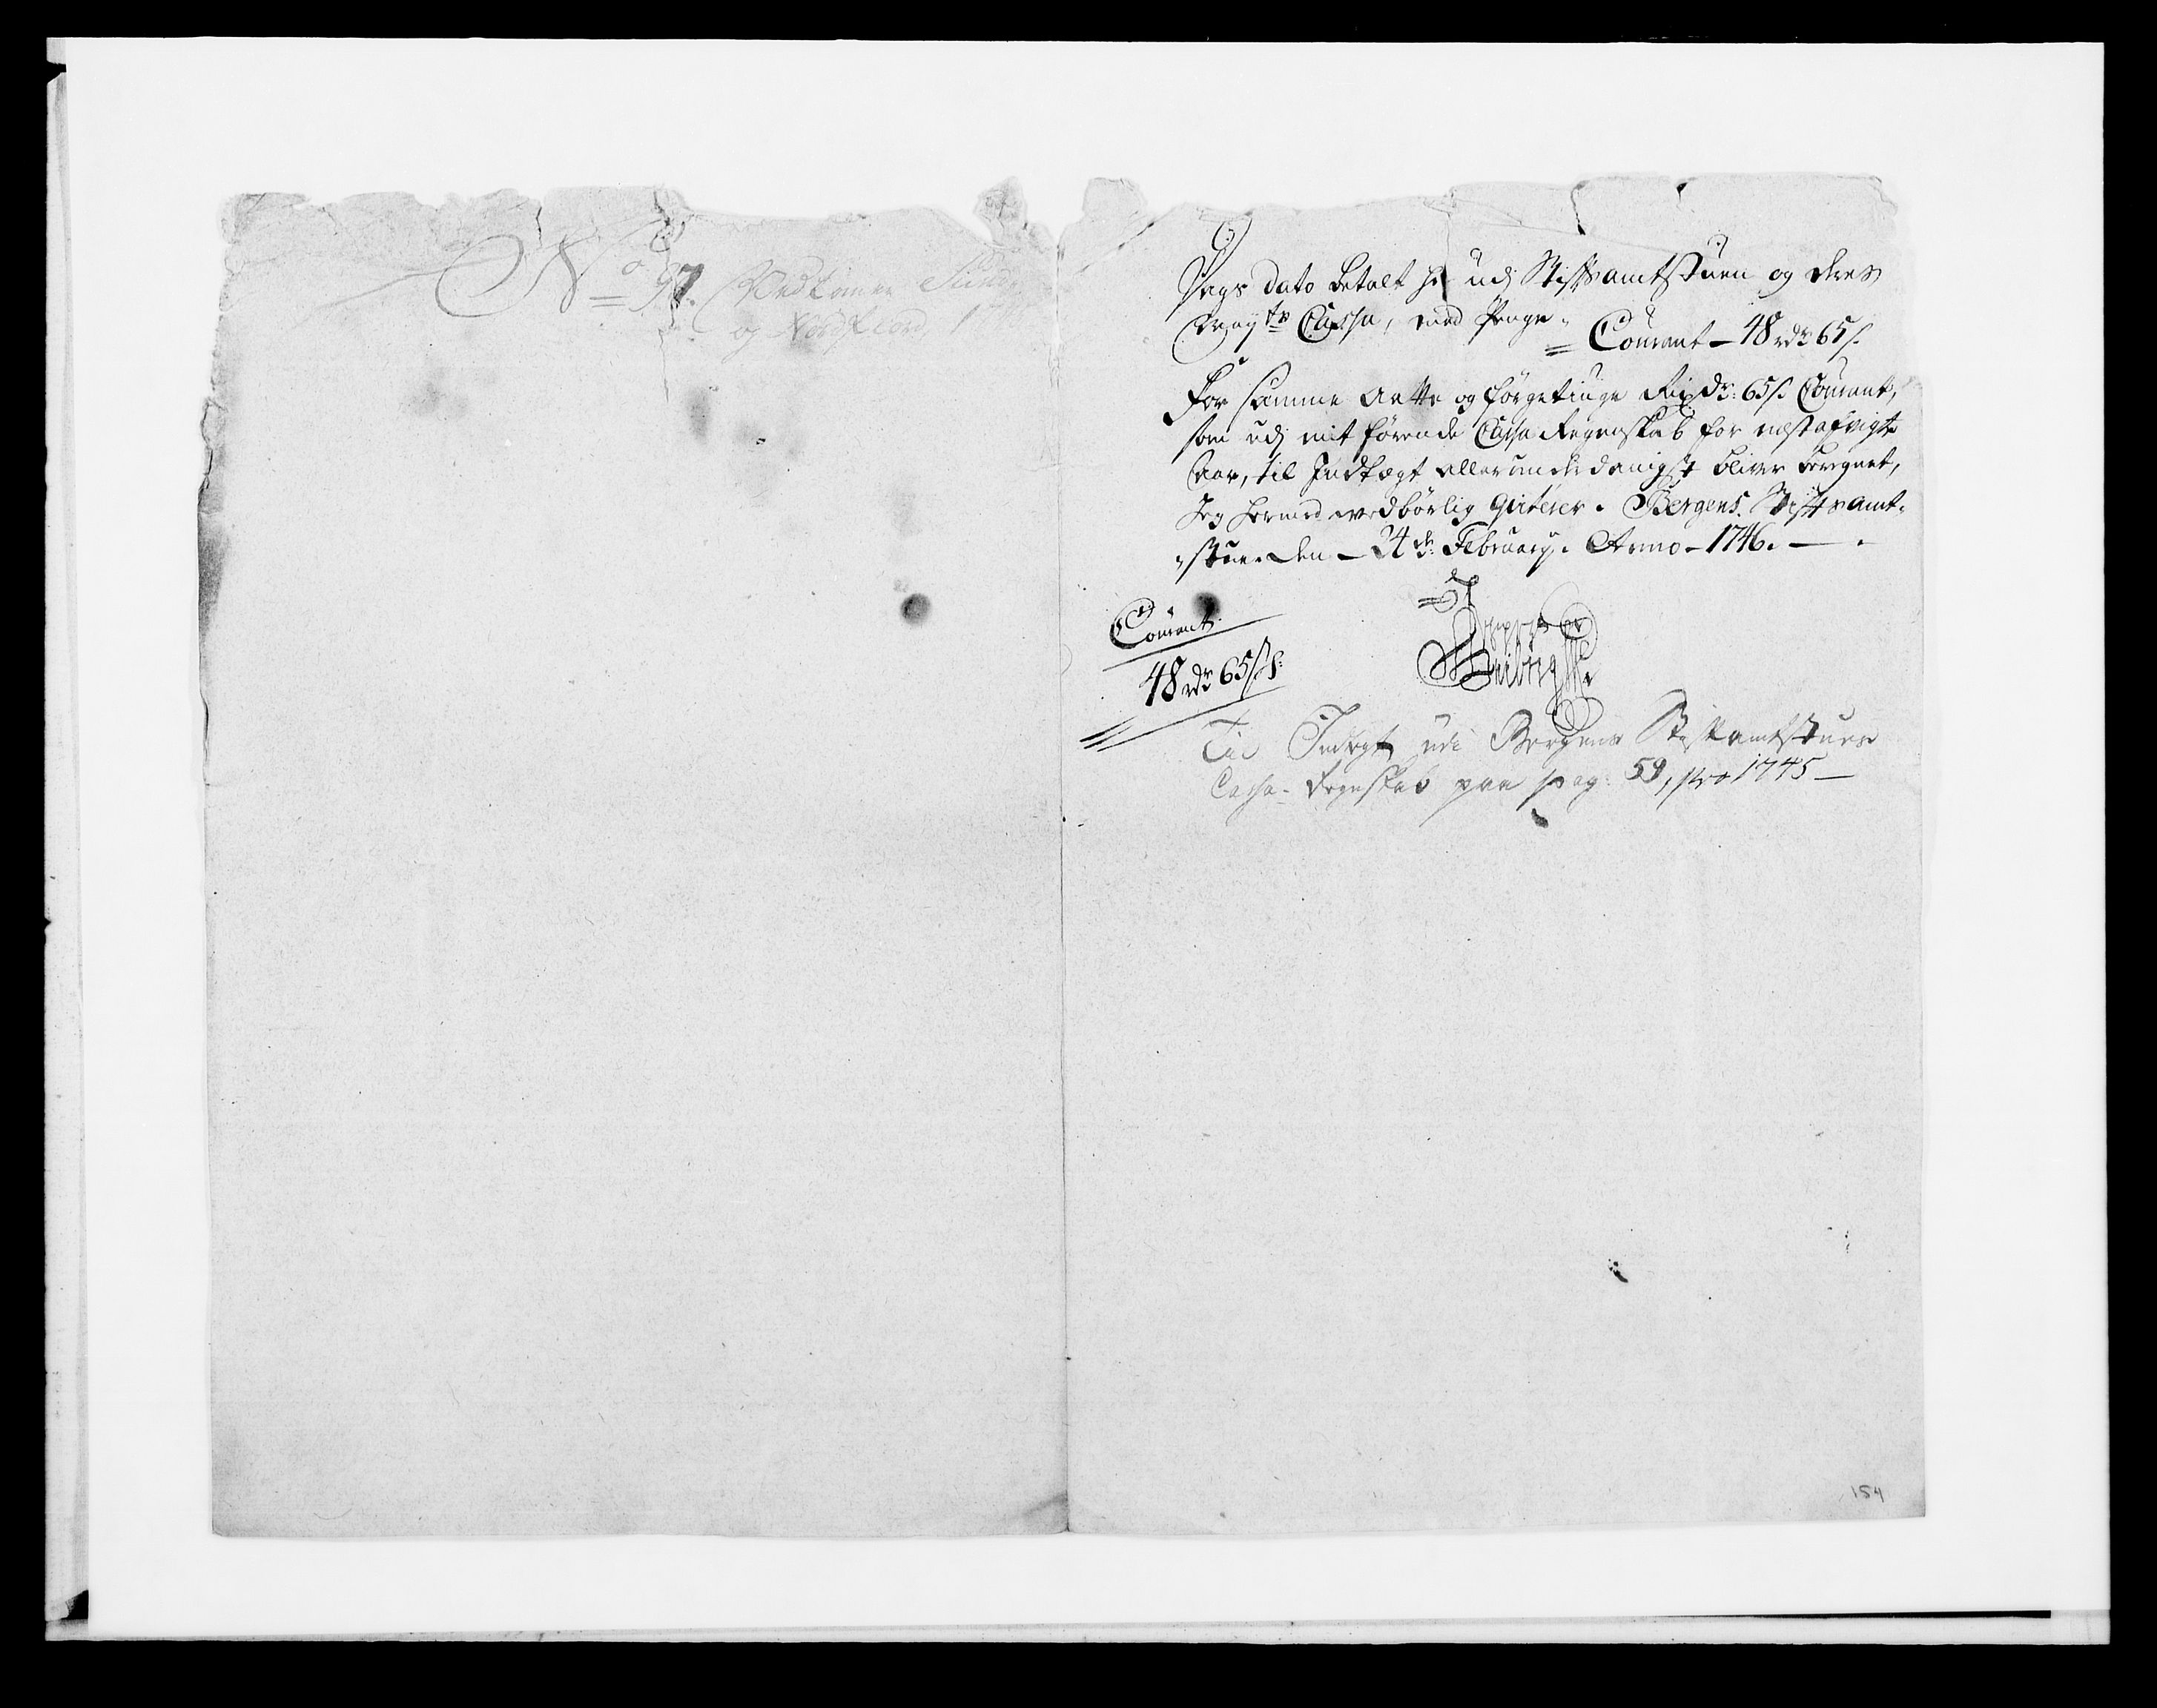 No 97. Vedkommer Sund
og Nordfiord 17
Dags dato betalt her udj Stiftsamtstuen og Deres
Mayts Cassa, med Penge
Courant – 48 rdr 65 s.
For samme Aatte og förgetiuge Rixdr: 65 s. Courant,
som udj mit förende Cassa Regenskab for nest afvigte
Aar, til Indtægt allerunderdanigst bliver beregnet,
Jeg hermed vedbörlig qviterer. Bergens Stiftsamt-
stue den – 24de February. Anno – 1746. –
Courant.
48 rdr 65 s:
Til Indtegt udi Bergens Stiftamtstues
Cassa-Regnskab paa pag: 59, pro 1745 –
154